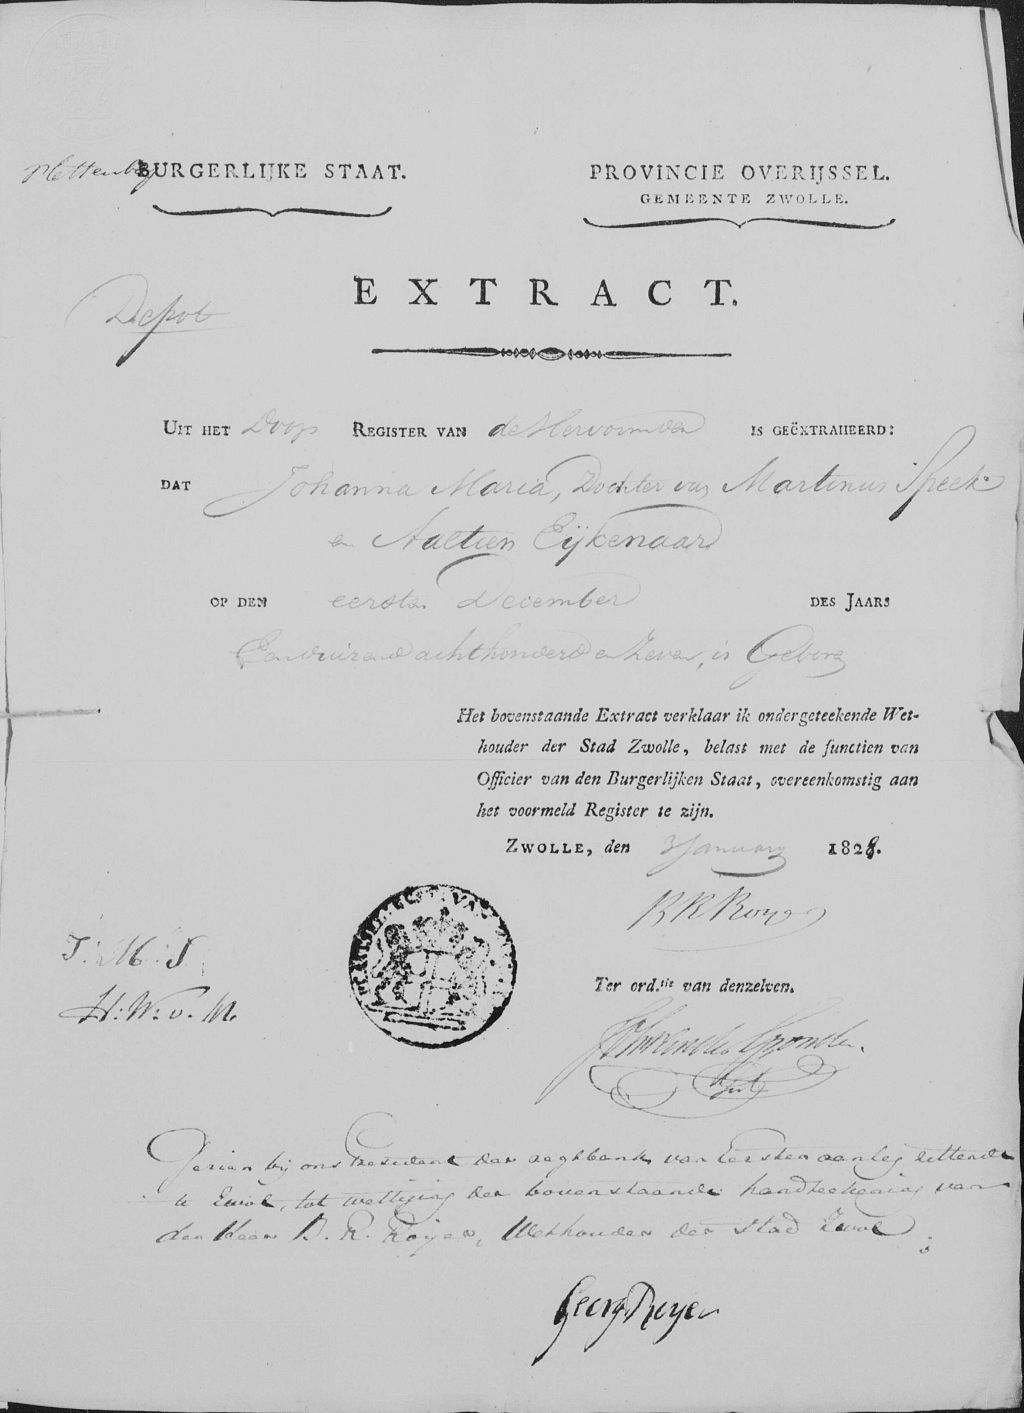 BURGERLIJKE STAAT.
PROVINCIE OVERIJSSEL.
GEMEENTE ZWOLLE.
EXTRACT.
Depot
UIT HET Doop REGISTER VAN de Hervormden IS GEËXTRAHEERD:
DAT Johanna Maria, Dochter van Martinus Speek
en Aaltien Eijkenaar
OP DEN eersten December DES JAARS
Eenduizend achthonderd en Zeven, is Geboren
Het bovenstaande Extract verklaar ik ondergeteekende Wet-
houder der Stad Zwolle, belast met de functien van
Officier van den Burgerlijken Staat, overeenkomstig aan
het voormeld Register te zijn.
ZWOLLE, den 3 January 1828.
B R Royer
J: M: S
H: W: v. M.
Ter ord.tie van denzelven.
Gezien bij ons President der regtbank van Eersten aanleg zittende
te Zwol, tot wettiging der bovenstaande handteekening van
den Heer B. R. Royer, Wethouder der stad Zwol;
Georg Royer